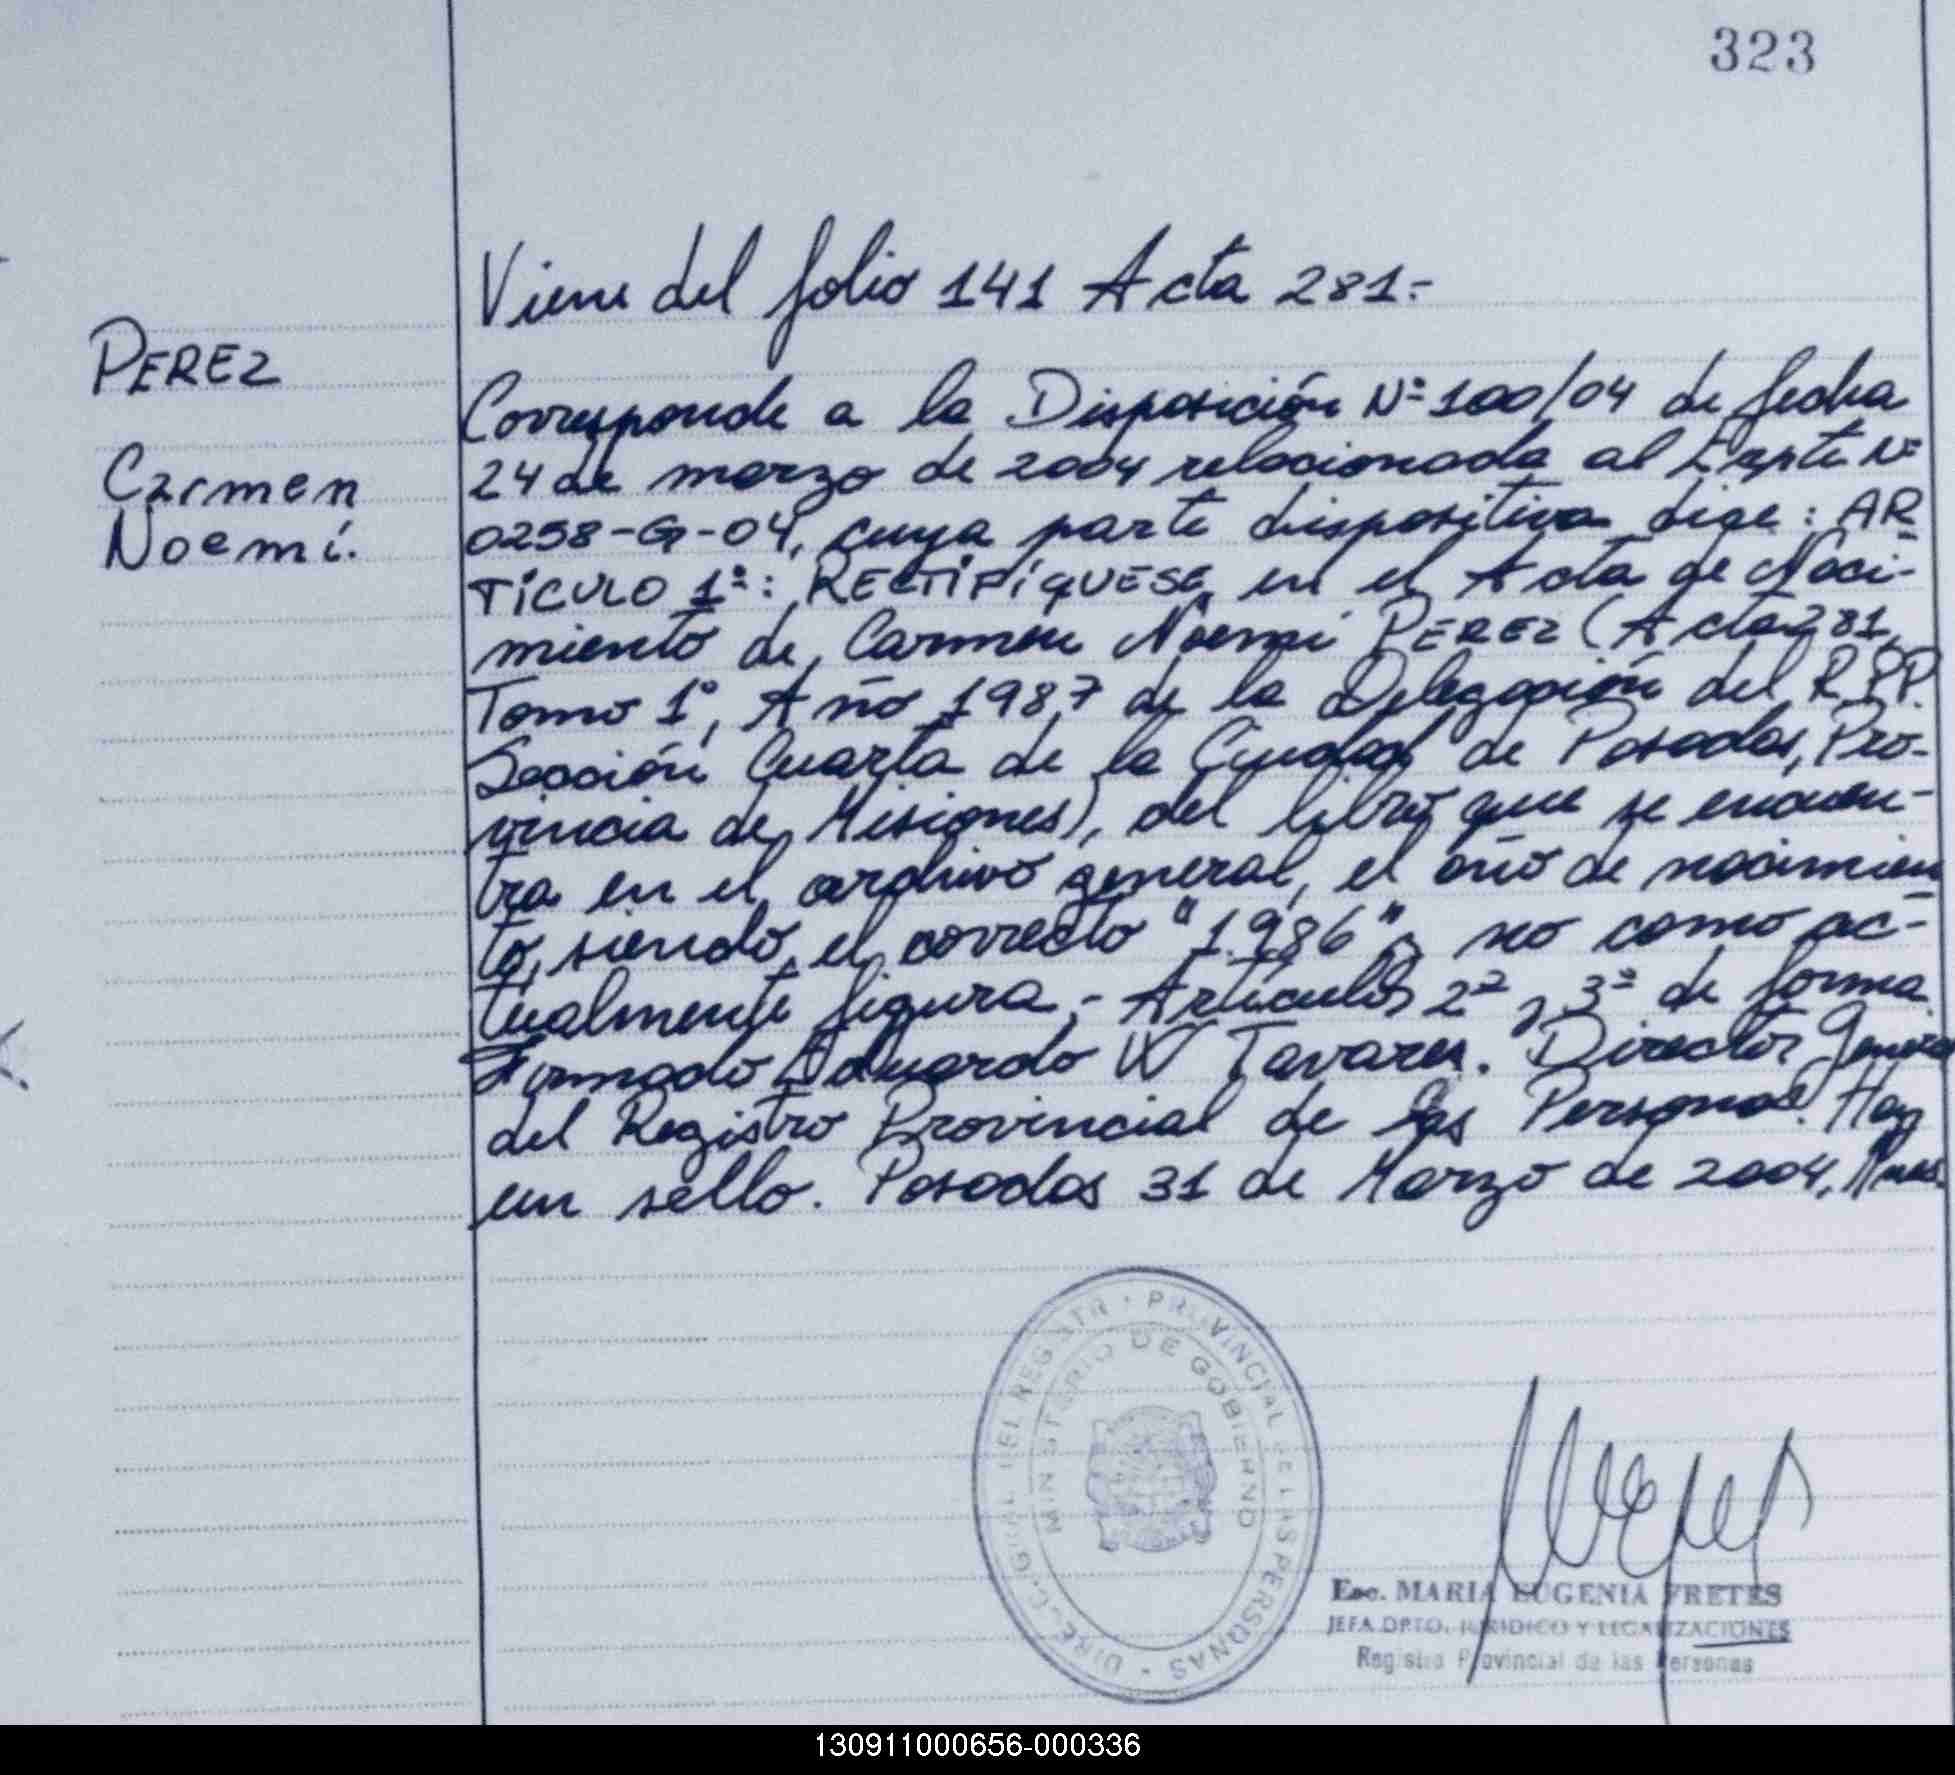 323
Viene del folio 141 Acta 281.-
PEREZ
Carmen
Noemí.
Corresponde a la Disposición Nº 100/04 de fecha
24 de marzo de 2004 relacionada al Expte Nº
0258-G-04, cuya parte dispositiva dice: AR
TÍCULO 1º: RECTIFÍQUESE, en el Acta de Naci-
miento de Carmen Noemí PEREZ (Acta 281,
Tomo 1º, Año 1987 de la Delegación del R.P.P.
Sección Cuarta de la Ciudad de Posadas, Pro-
vincia de Misiones), del libro que se encuen-
tra en el archivo general, el año de nacimien
to, siendo el correcto "1986" y no como ac-
tualmente figura.- Artículos 2º y 3º de forma
Firmado Eduardo W Tavares. Director General
del Registro Provincial de las Personas. Hay
un sello. Posadas 31 de Marzo de 2004,
DIREC. GRAL DEL REGISTR • PROVINCIAL DE LAS PERSONAS •
MINISTERIO DE GOBIERNO
Esc. MARIA EUGENIA FRETES
JEFA DPTO. JURIDICO Y LEGALIZACIONES
Registro Provincial de las Personas
130911000656-000336